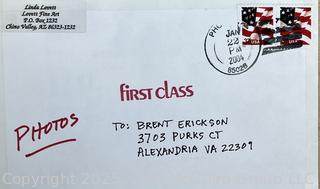 Linda Lovett
Lovett Fine Art
P.O. Box 1232
Chino Valley, AZ 86323-1232
JAN
22
PM
2004
85026
USA
first class
PHOTOS
TO: BRENT ERICKSON
3703 PURKS CT
ALEXANDRIA VA 22309